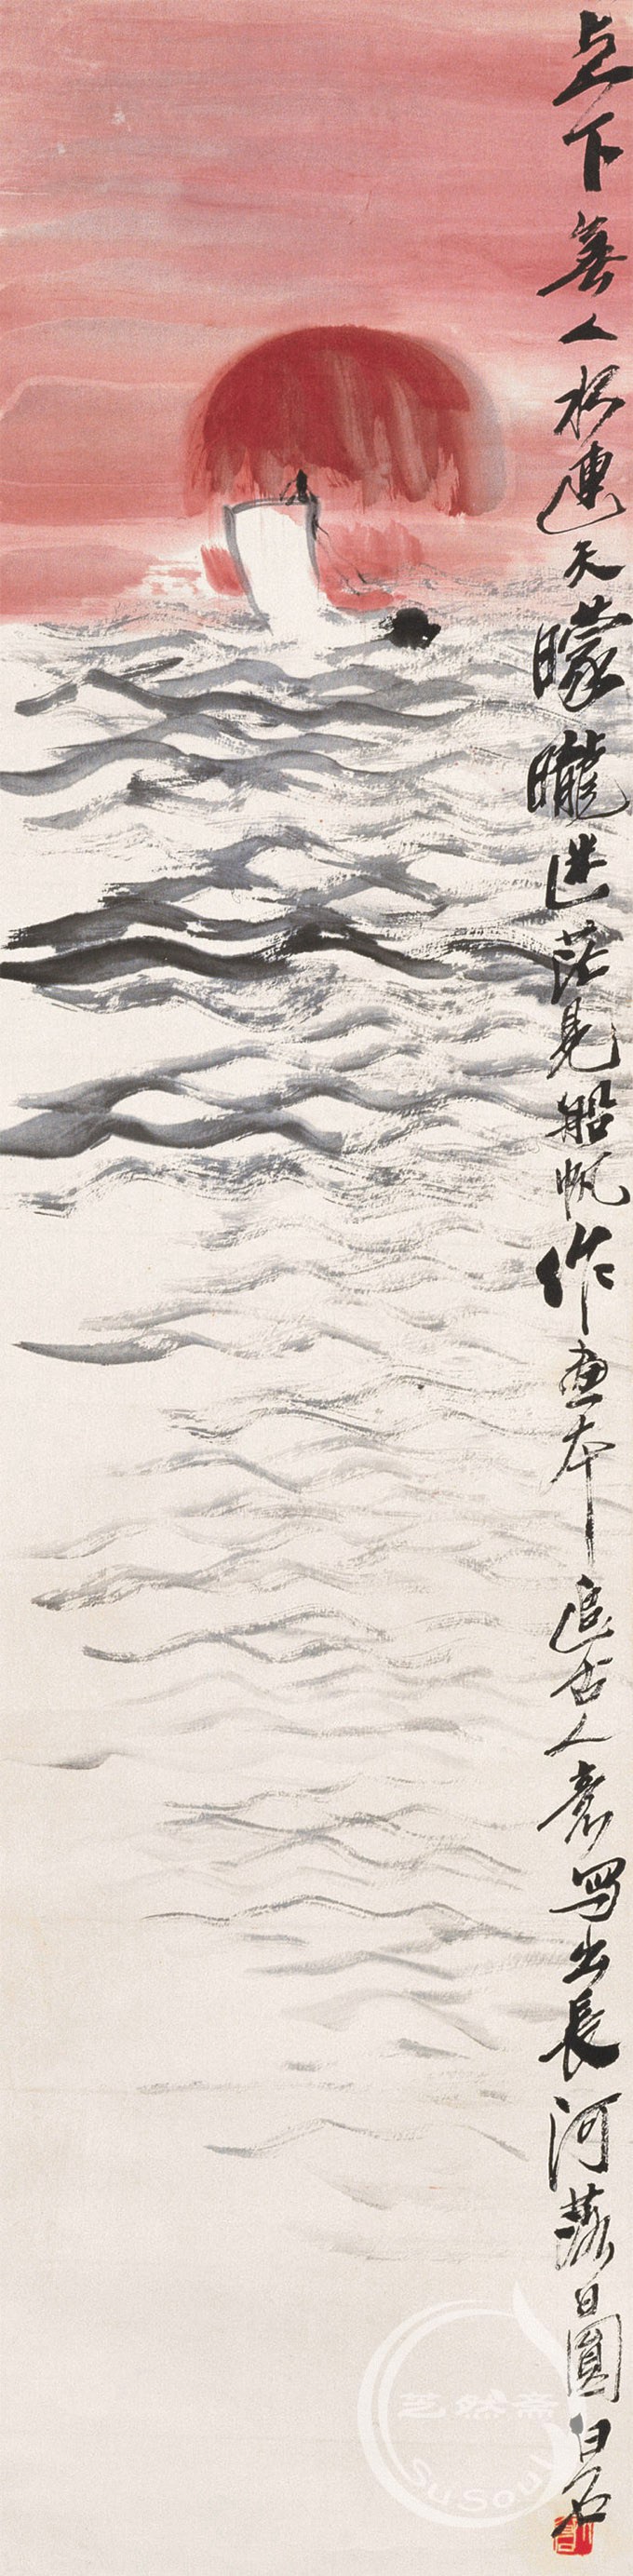 下無人水連天曚曨迷茫見船帆作畫本追古人意寫出長河落日圓白石
艺然斋
SuSoul